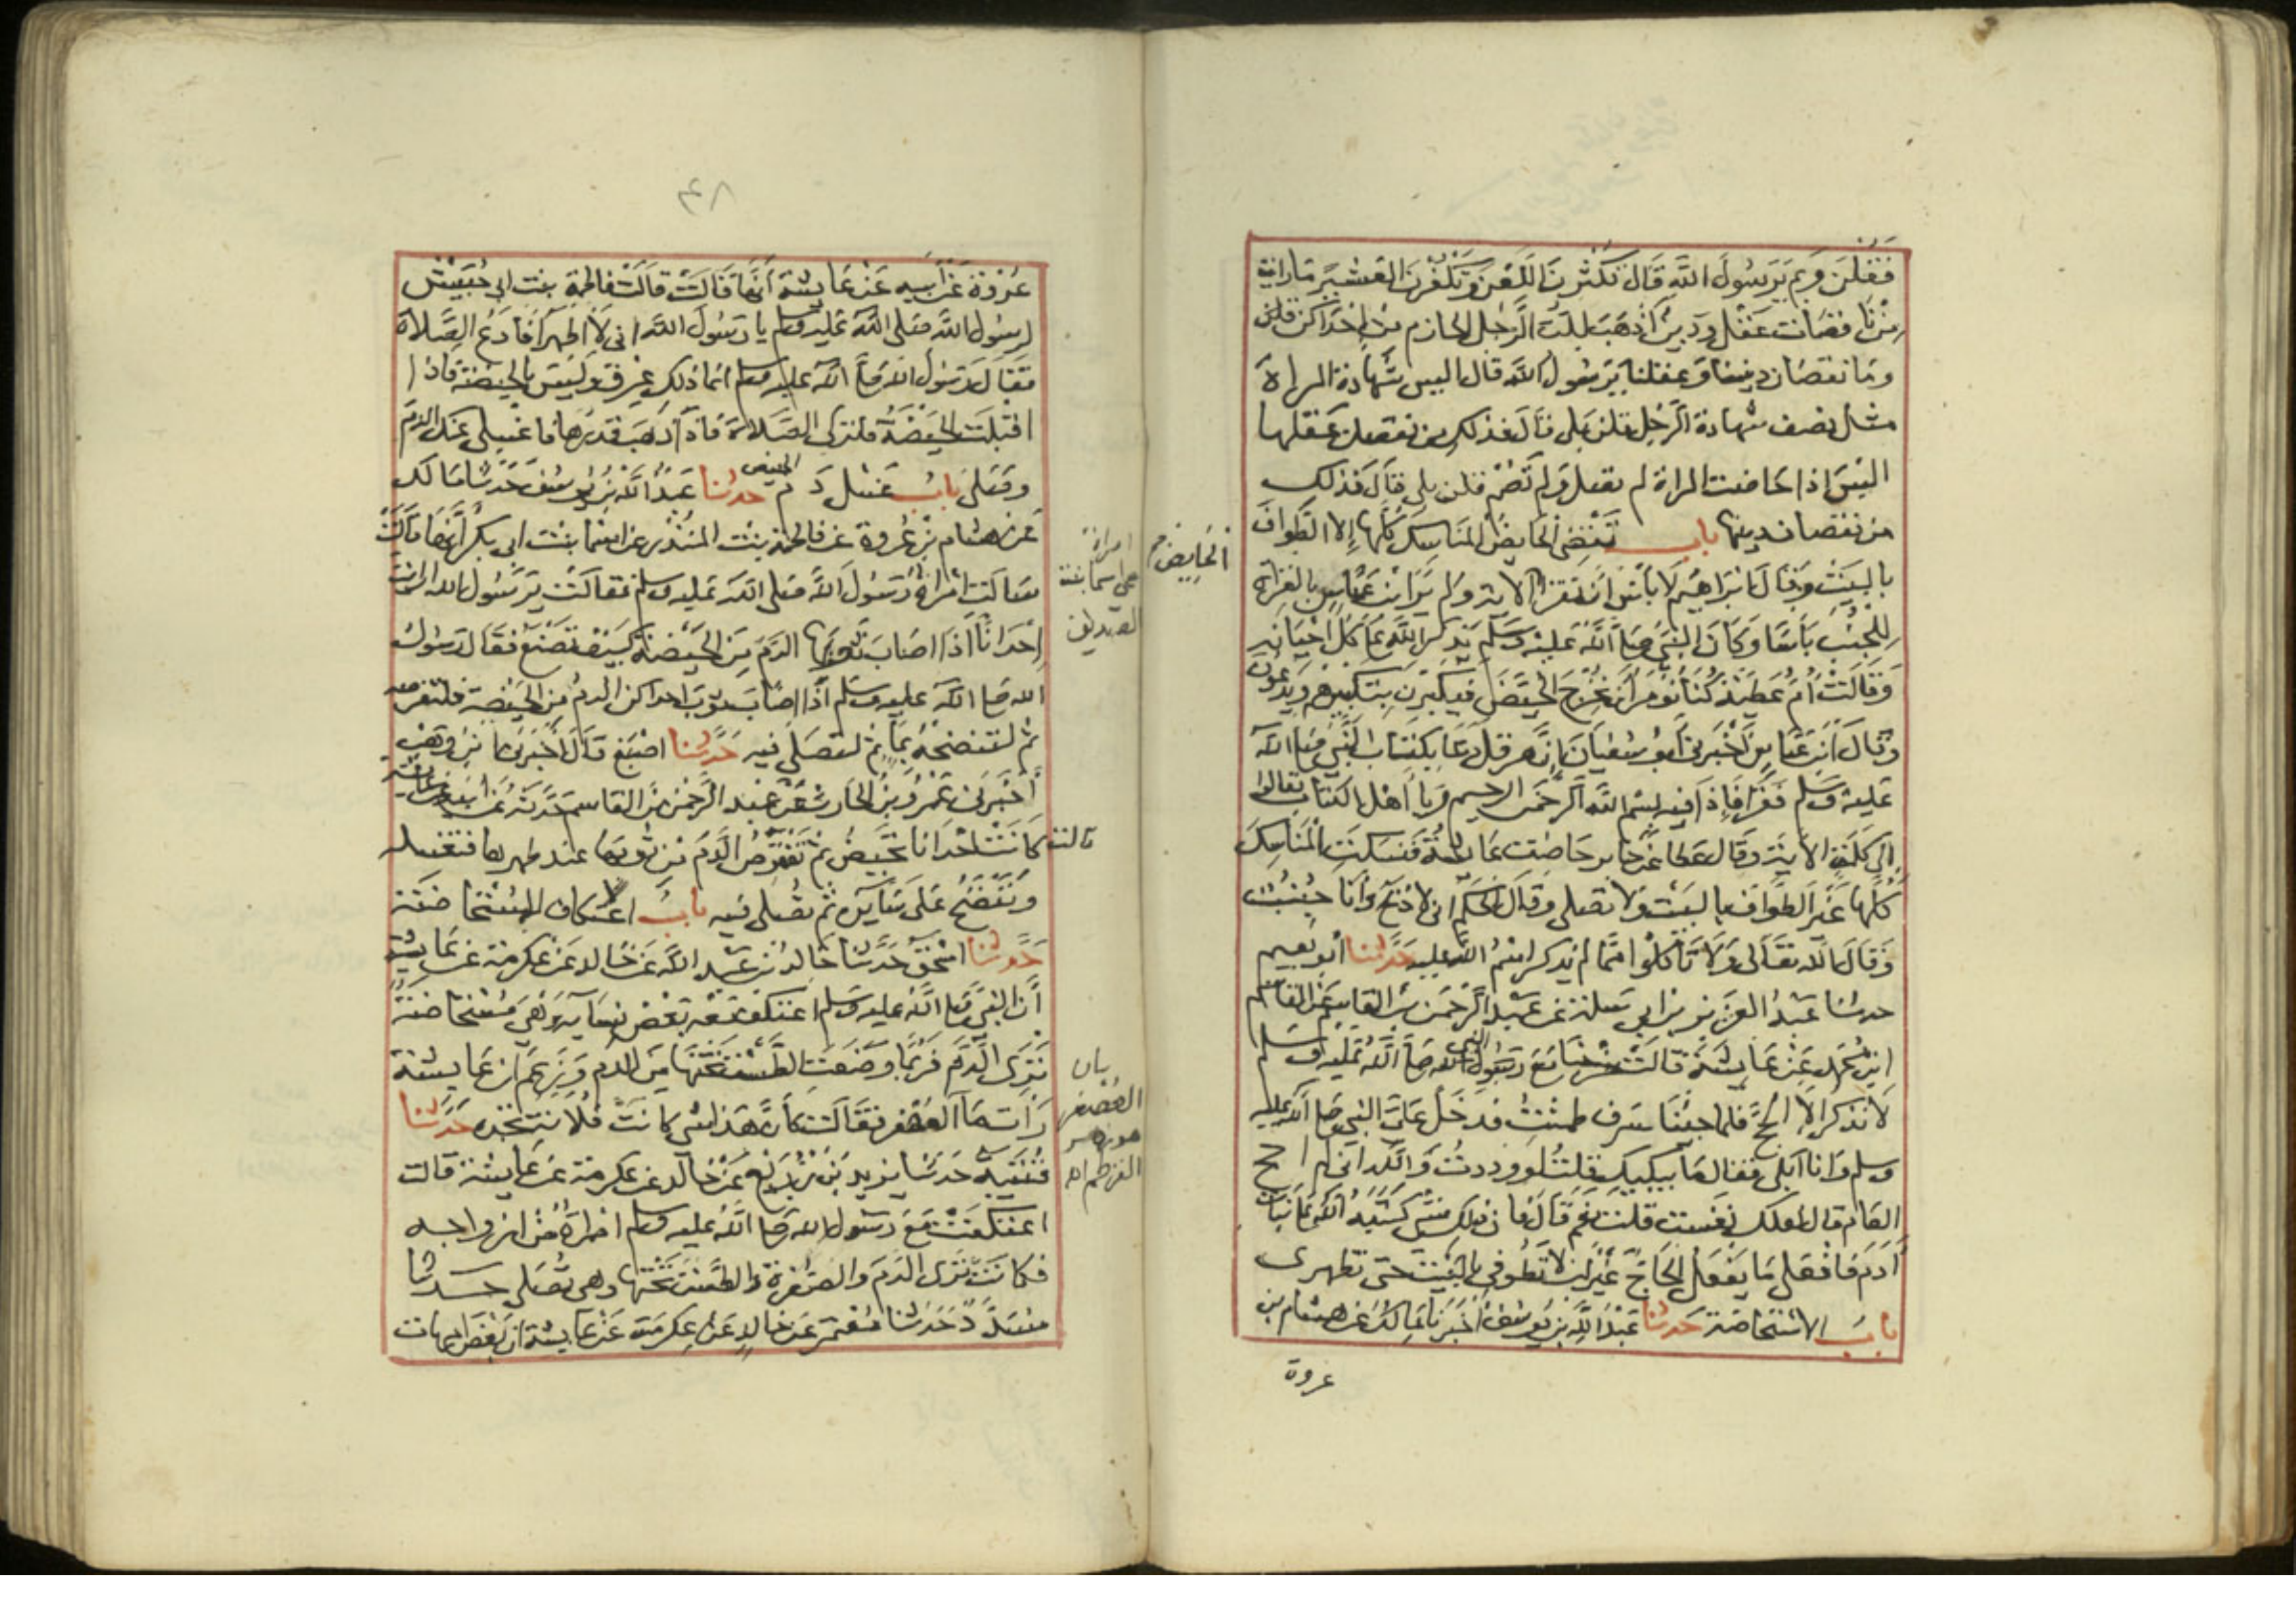 فقلن وبم يرسول الله قال تكثرن اللعن وتكفرن العشير ما رايت
من نا قصات عقل ودين اذهب للب الرجل الحازم من احداكن قلن
وما نقصان ديننا وعقلنا يرسول الله قال اليس شهادة المراة
مثل نصف شهادة الرجل قلن بلى قال فذلك من نقصان عقلها
اليس اذا حاضت المراة لم تصل ولم تصم قلن بلى قال فذلك
من نقصان دينها باب تقضي الحايض المناسك كلها إلا الطواف
الحايض
بالبيت وقال ابراهيم لا باس ان تقرا الاية ولم ير ابن عباس بالقراة
للجنب باسا وكان النبي صلى الله عليه وسلم يذكر الله على كل احيانه
وقالت أم عطية كنا نومر أن نخرج الحيض فيكبرن بتكبيرهم ويدعون
وقال ابن عباس أخبرني أبو سفيان ان هرقل دعا بكتاب النبي صلى الله
عليه وسلم فقرا فإذا فيه بسم الله الرحمن الرحيم ويا أهل الكتاب تعالوا
إلى كلمة الاية وقال عطا عن جابر حاضت عايشة فنسكت المناسك
كلها غير الطواف بالبيت ولا تصلي وقال الحكم اني لاذبح وأنا جنب
وقال الله تعالى ولا تأكلوا مما لم يذكر اسم الله عليه حدثنا أبو نعيم
حدثنا عبد العزيز بن ابي سلمة عن عبد الرحمن بن القاسم عن القاسم
ابن محمد عن عايشة قالت خرجنا مع رسول الله صلى الله عليه وسلم
لا نذكر إلا الحج فلما جئنا سرف طمثت فدخل علي النبي صلى الله عليه
وسلم وانا ابكي فقال ما يبكيك قلت لوددت والله اني لم احج
العام قال لعلك نفست قلت نعم قال فان ذلك شي كتبه الله على بنات
آدم فافعلي ما يفعل الحاج غير ان لا تطوفي بالبيت حتى تطهري
باب الاستحاضة حدثنا عبد الله بن يوسف أخبرنا مالك عن هشام بن
عروة
٤٨
عروة عن أبيه عن عايشة أنها قالت قالت فاطمة بنت ابي حبيش
لرسول الله صلى الله عليه وسلم يا رسول الله اني لا اطهر أفادع الصلاة
فقال رسول الله صلى الله عليه وسلم انما ذلك عرق وليس بالحيضة فاذا
اقبلت الحيضة فاتركي الصلاة فاذا ذهب قدرها فاغسلي عنك الدم
وصلي باب غسل دم الحيض حدثنا عبد الله بن يوسف حدثنا مالك
عن هشام بن عروة عن فاطمة بنت المنذر عن اسما بنت ابي بكر أنها قالت
سالت امراة رسول الله صلى الله عليه وسلم فقالت يرسول الله ارايت
امراة
هي اسما بنت
الصديق
إحدانا اذا اصاب ثوبها الدم من الحيضة كيف تصنع فقال رسول
الله صلى الله عليه وسلم اذا اصاب ثوب احداكن الدم من الحيضة فلتقرصه
ثم لتنضحه بما ثم لتصلي فيه حدثنا اصبغ قال اخبرني ابن وهب
أخبرني عمرو بن الحارث عن عبد الرحمن بن القاسم حدثه عن ابيه عن عايشة
قالت كانت احدانا تحيض ثم تقترص الدم من ثوبها عند طهرها فتغسله
وتنضح على سايره ثم تصلي فيه باب اعتكاف المستحاضة
حدثنا اسحق حدثنا خالد بن عبد الله عن خالد عن عكرمة عن عايشة
أن النبي صلى الله عليه وسلم اعتكف معه بعض نسايه وهي مستحاضة
ترى الدم فربما وضعت الطست تحتها من الدم وزعم ان عايشة
رات ما العصفر فقالت كان هذا شي كانت فلانة تجده حدثنا
بيان
العصفر
هو زهر
القرطم اه
قتيبة حدثنا يزيد بن زريع عن خالد عن عكرمة عن عايشة قالت
اعتكفت مع رسول الله صلى الله عليه وسلم امراة من ازواجه
فكانت ترى الدم والصفرة والطست تحتها وهي تصلي حدثنا
مسدد حدثنا معتمر عن خالد عن عكرمة عن عايشة ان بعض امهات